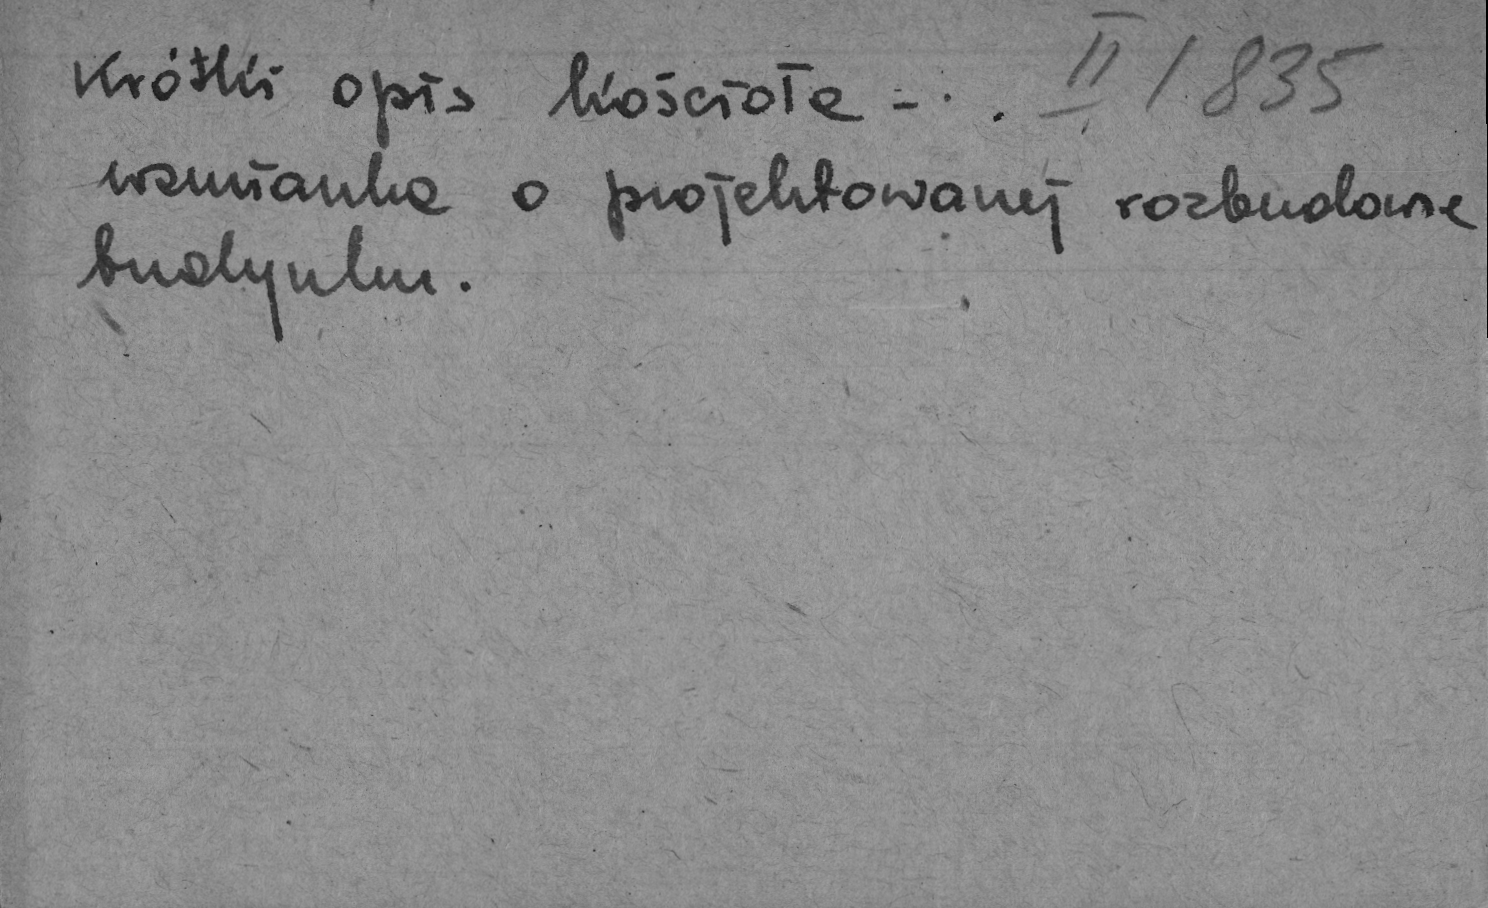 Krótki opis kościoła - . . II / 835
wzmianka o projektowanej rozbudowie
budynku.